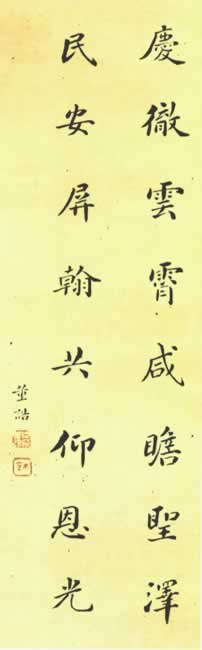 慶徹雲霄咸瞻聖澤
民安屏翰共仰恩光
董誥